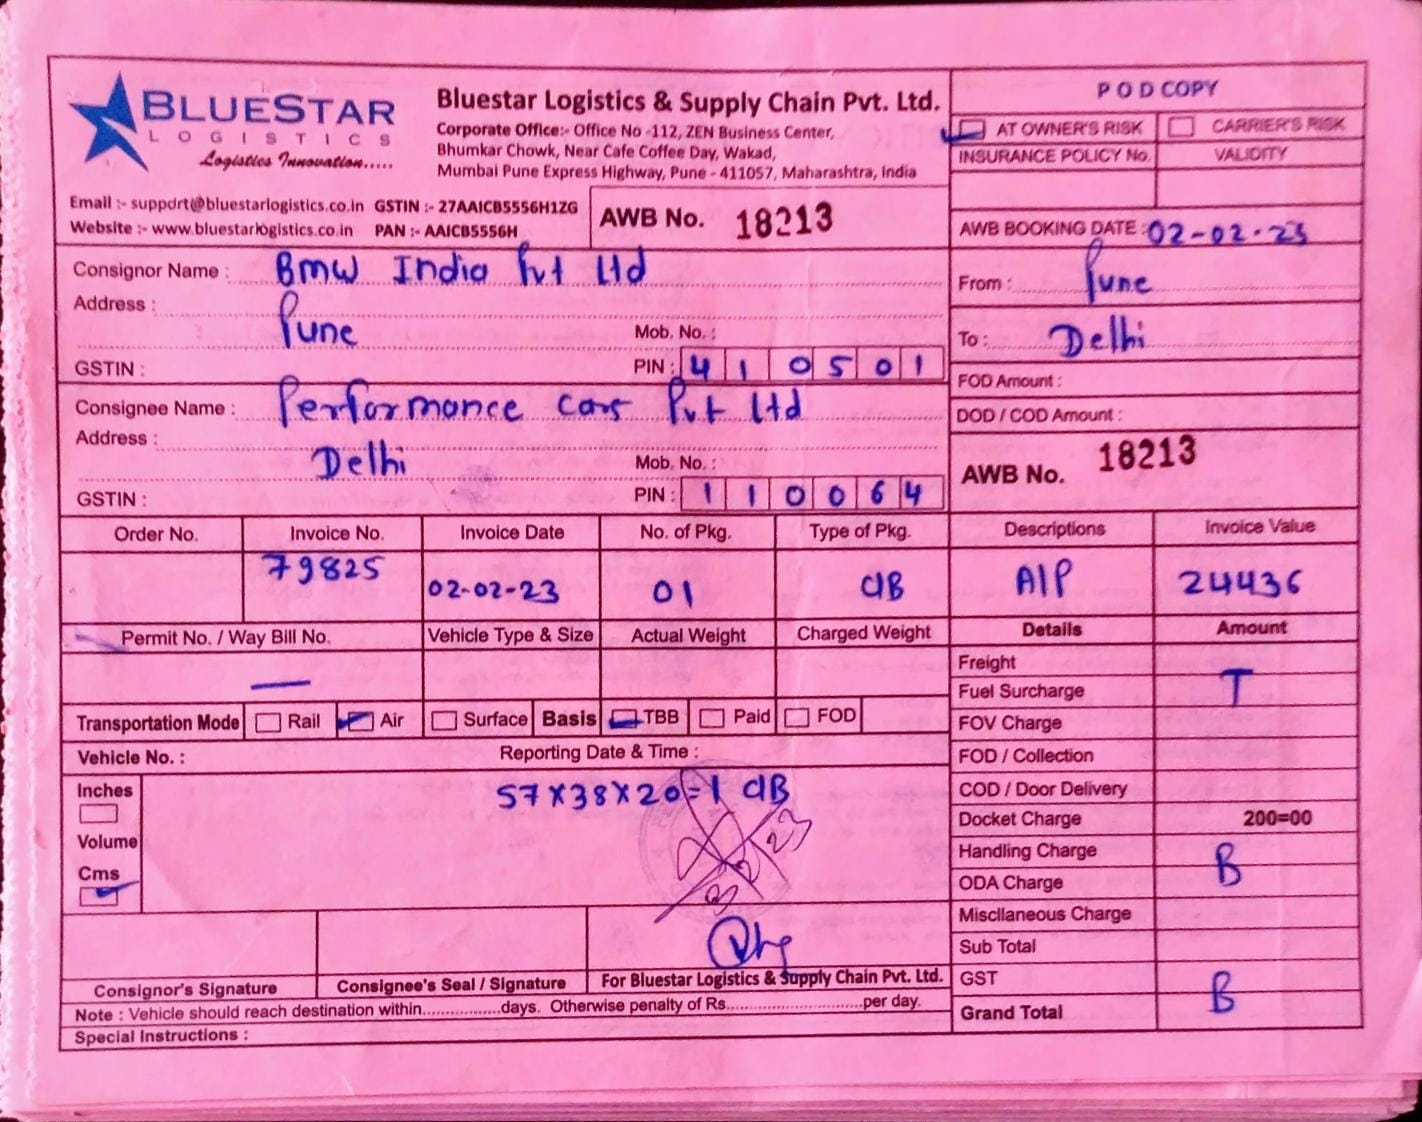 BLUESTAR
LOGISTICS
Logistics Innovation.....
Bluestar Logistics & Supply Chain Pvt. Ltd.
Corporate Office:- Office No -112, ZEN Business Center,
Bhumkar Chowk, Near Cafe Coffee Day, Wakad,
Mumbai Pune Express Highway, Pune - 411057, Maharashtra, India
POD COPY
AT OWNER'S RISK CARRIER'S RISK
INSURANCE POLICY No. VALIDITY
Email :- support@bluestarlogistics.co.in GSTIN :- 27AAICB5556H1ZG
Website :- www.bluestarlogistics.co.in PAN :- AAICB5556H
AWB No. 18213
AWB BOOKING DATE : 02-02-23
Consignor Name : BMW India Pvt Ltd
Address :
Pune Mob. No. :
GSTIN : PIN : 410501
From : Pune
To : Delhi
Consignee Name : Performance cars Pvt Ltd
Address :
Delhi Mob. No. :
GSTIN : PIN : 110064
FOD Amount :
DOD / COD Amount :
AWB No. 18213
Order No. Invoice No. Invoice Date No. of Pkg. Type of Pkg. Descriptions Invoice Value
79825 02-02-23 01 CIB AIP 24436
Permit No. / Way Bill No. Vehicle Type & Size Actual Weight Charged Weight Details Amount
—
Transportation Mode Rail Air Surface Basis TBB Paid FOD
Vehicle No. : Reporting Date & Time :
Inches
Volume
Cms
57X38X20=1 CIB
Freight
Fuel Surcharge T
FOV Charge
FOD / Collection
COD / Door Delivery
Docket Charge 200=00
Handling Charge B
ODA Charge
Miscllaneous Charge
Sub Total
GST B
Grand Total
Consignor's Signature Consignee's Seal / Signature For Bluestar Logistics & Supply Chain Pvt. Ltd.
Note : Vehicle should reach destination within.................days. Otherwise penalty of Rs..............................per day.
Special Instructions :